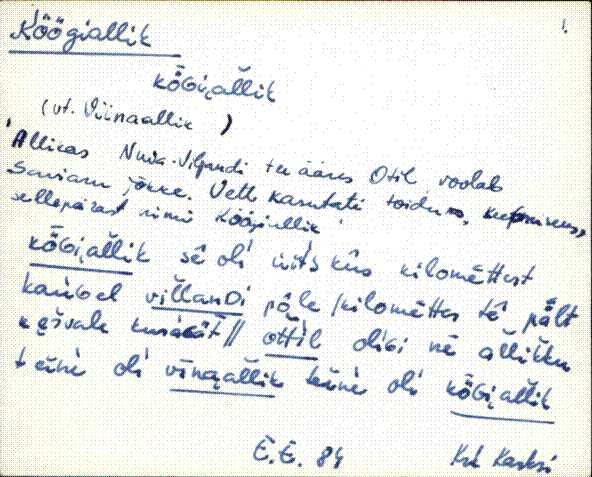 Köögiallik 1.
kȫGi̮ alĺik
(vt. Viinaallik)
'Allikas Nuia-Viljandi tee ääres Otil, voolab
Saviaru jõkke. Vett kasutati toiduks,
sellepärast nimi Köögiallik'
kȫGi̮alĺik sē̬ oĺi üit́s kiĺomēttert
kaŋ́Gel villanDi pōle /kilomēttert tē pält
oĺiGi nē allikku
teine oĺi vīna̮alĺik teine oĺi kȫGi̮alĺik
E.E. 84 Krk Karksi